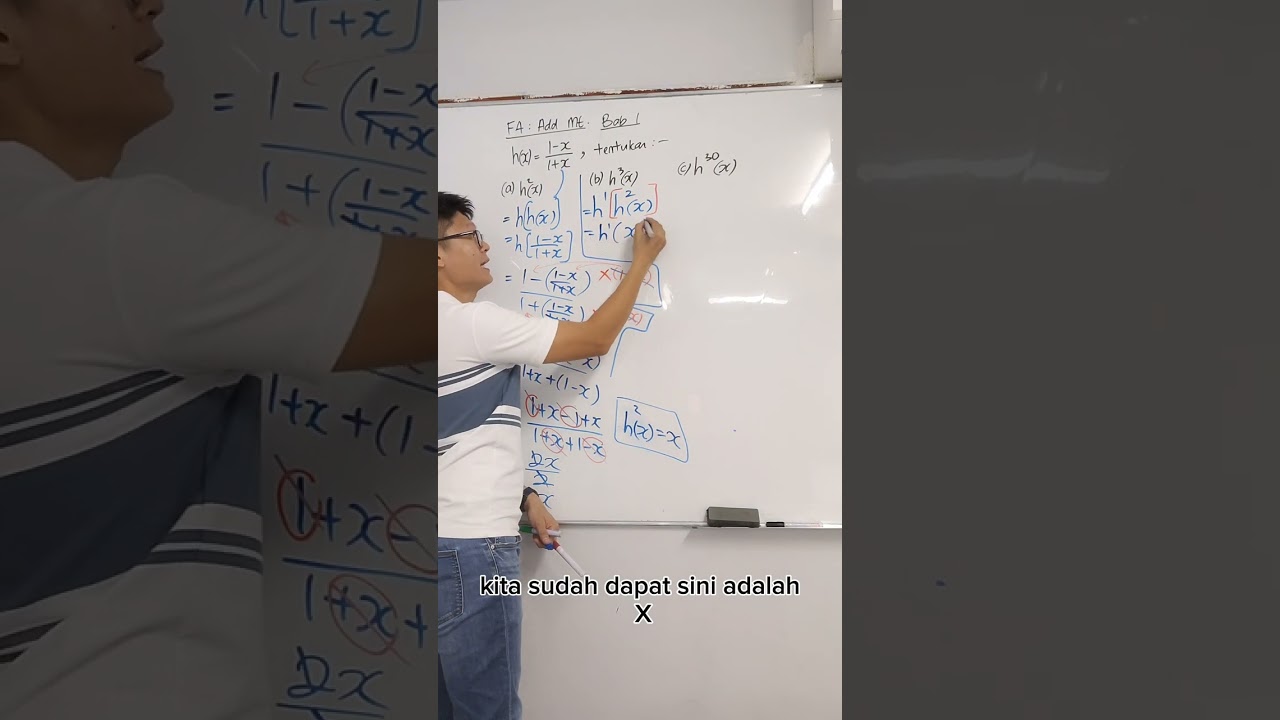 F4: Add Mt. Bab 1
h(x) = \frac{1-x}{1+x}, tentukan :-
(a) h²(x)
= h[h(x)]
= h[\frac{1-x}{1+x}]
= \frac{1-(\frac{1-x}{1+x})}{1+(\frac{1-x}{1+x})}
1+x+(1-x)
\frac{1+x-1+x}{1+x+1-x}
\frac{2x}{2}
x
h²(x) = x
(b) h³(x)
= h¹[h²(x)]
= h¹(x
(c) h³⁰(x)
kita sudah dapat sini adalah
X